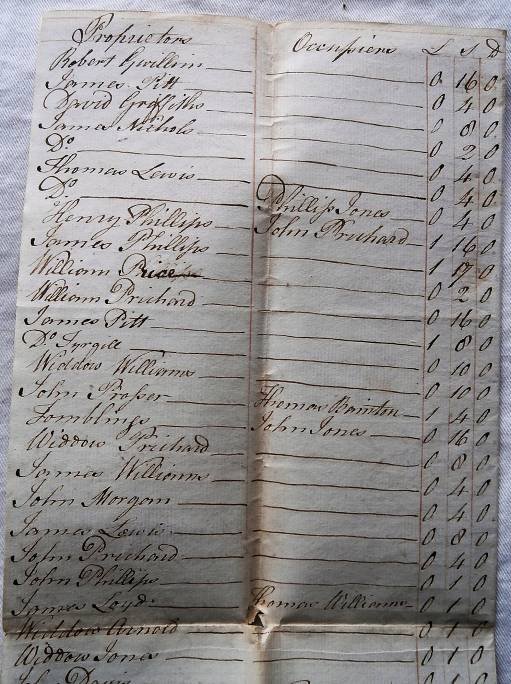 Proprietors Occupiers L S D
Robert Gwillem 0 16 0
James Pitt 0 4 0
David Griffiths 0 8 0
James Nichols 0 2 0
Do 0 4 0
Thomas Lewis 0 4 0
Do Phillip Jones 0 4 0
Henry Phillips John Prichard 1 16 0
James Phillips 1 17 0
William Price 0 2 0
William Prichard 0 16 0
James Pitt 1 8 0
Do 0 10 0
Widdow Williams 0 10 0
John Prosser Thomas Bainton 1 4 0
Tomblings John Jones 0 16 0
Widdow Prichard 0 8 0
James Williams 0 4 0
John Morgan 0 4 0
James Lewis 0 8 0
John Prichard 0 4 0
John Phillips 0 1 0
James Loyd Thomas Williams 0 1 0
Widdow Arnold 0 1 0
Widdow Jones 0 1 0
John Davis